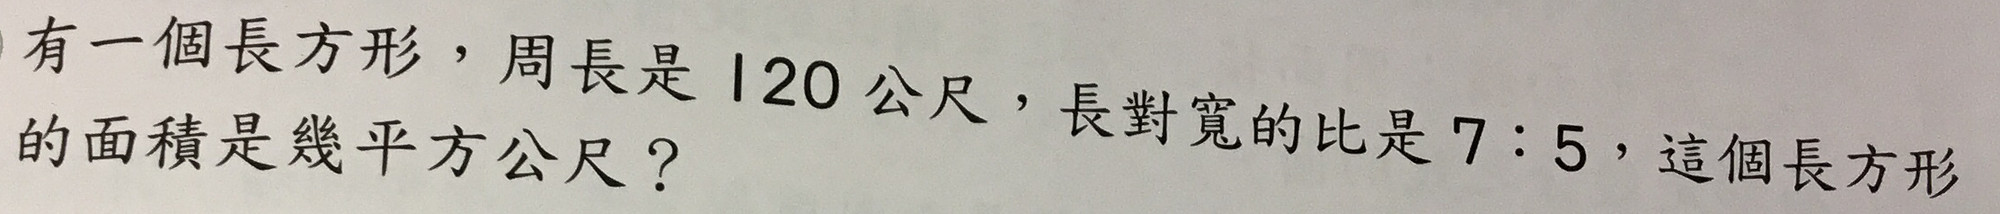 有一個長方形，周長是120公尺，長對寬的比是7：5，這個長方形
的面積是幾平方公尺？